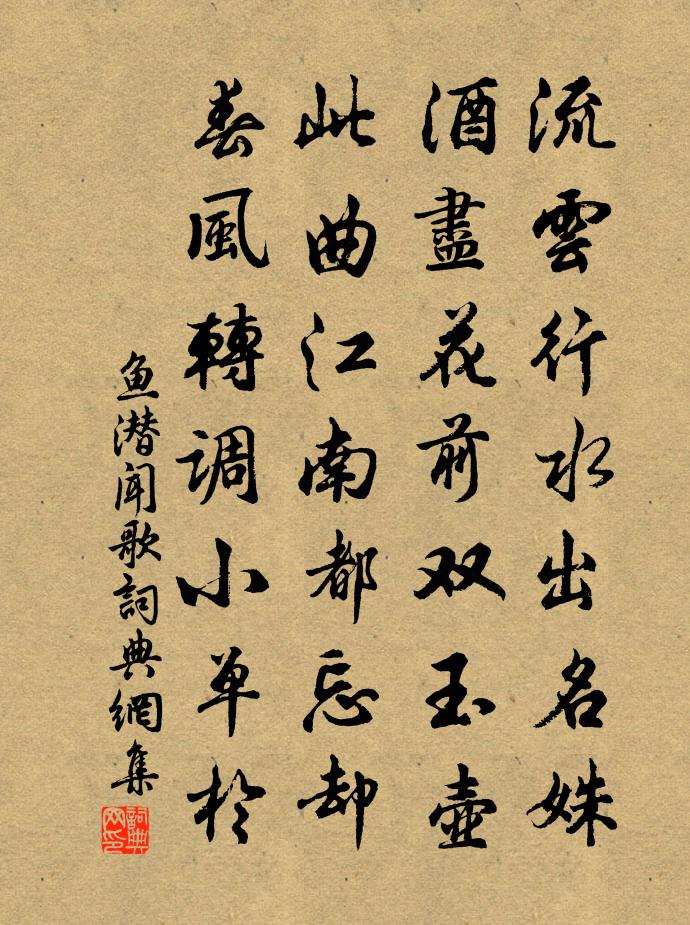 流雲行水出名姝
酒盡花前双玉壺
此曲江南都忘却
春風轉調小单於
鱼潜闻歌詞典網集
詞典网印